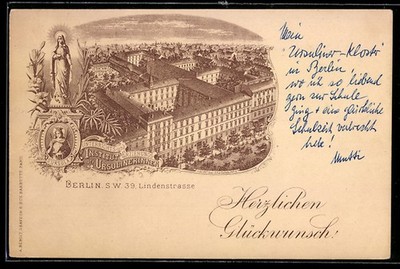 Mein
Ursuliner-Kloster
in Berlin
wo ich so liebend
gern zur Schule
ging + eine glückliche
Schulzeit verbracht
habe!
Mutti
INSTITUT
URSULINERINNEN
BERLIN. S.W. 39, Lindenstrasse
Herzlichen
Glückwunsch!